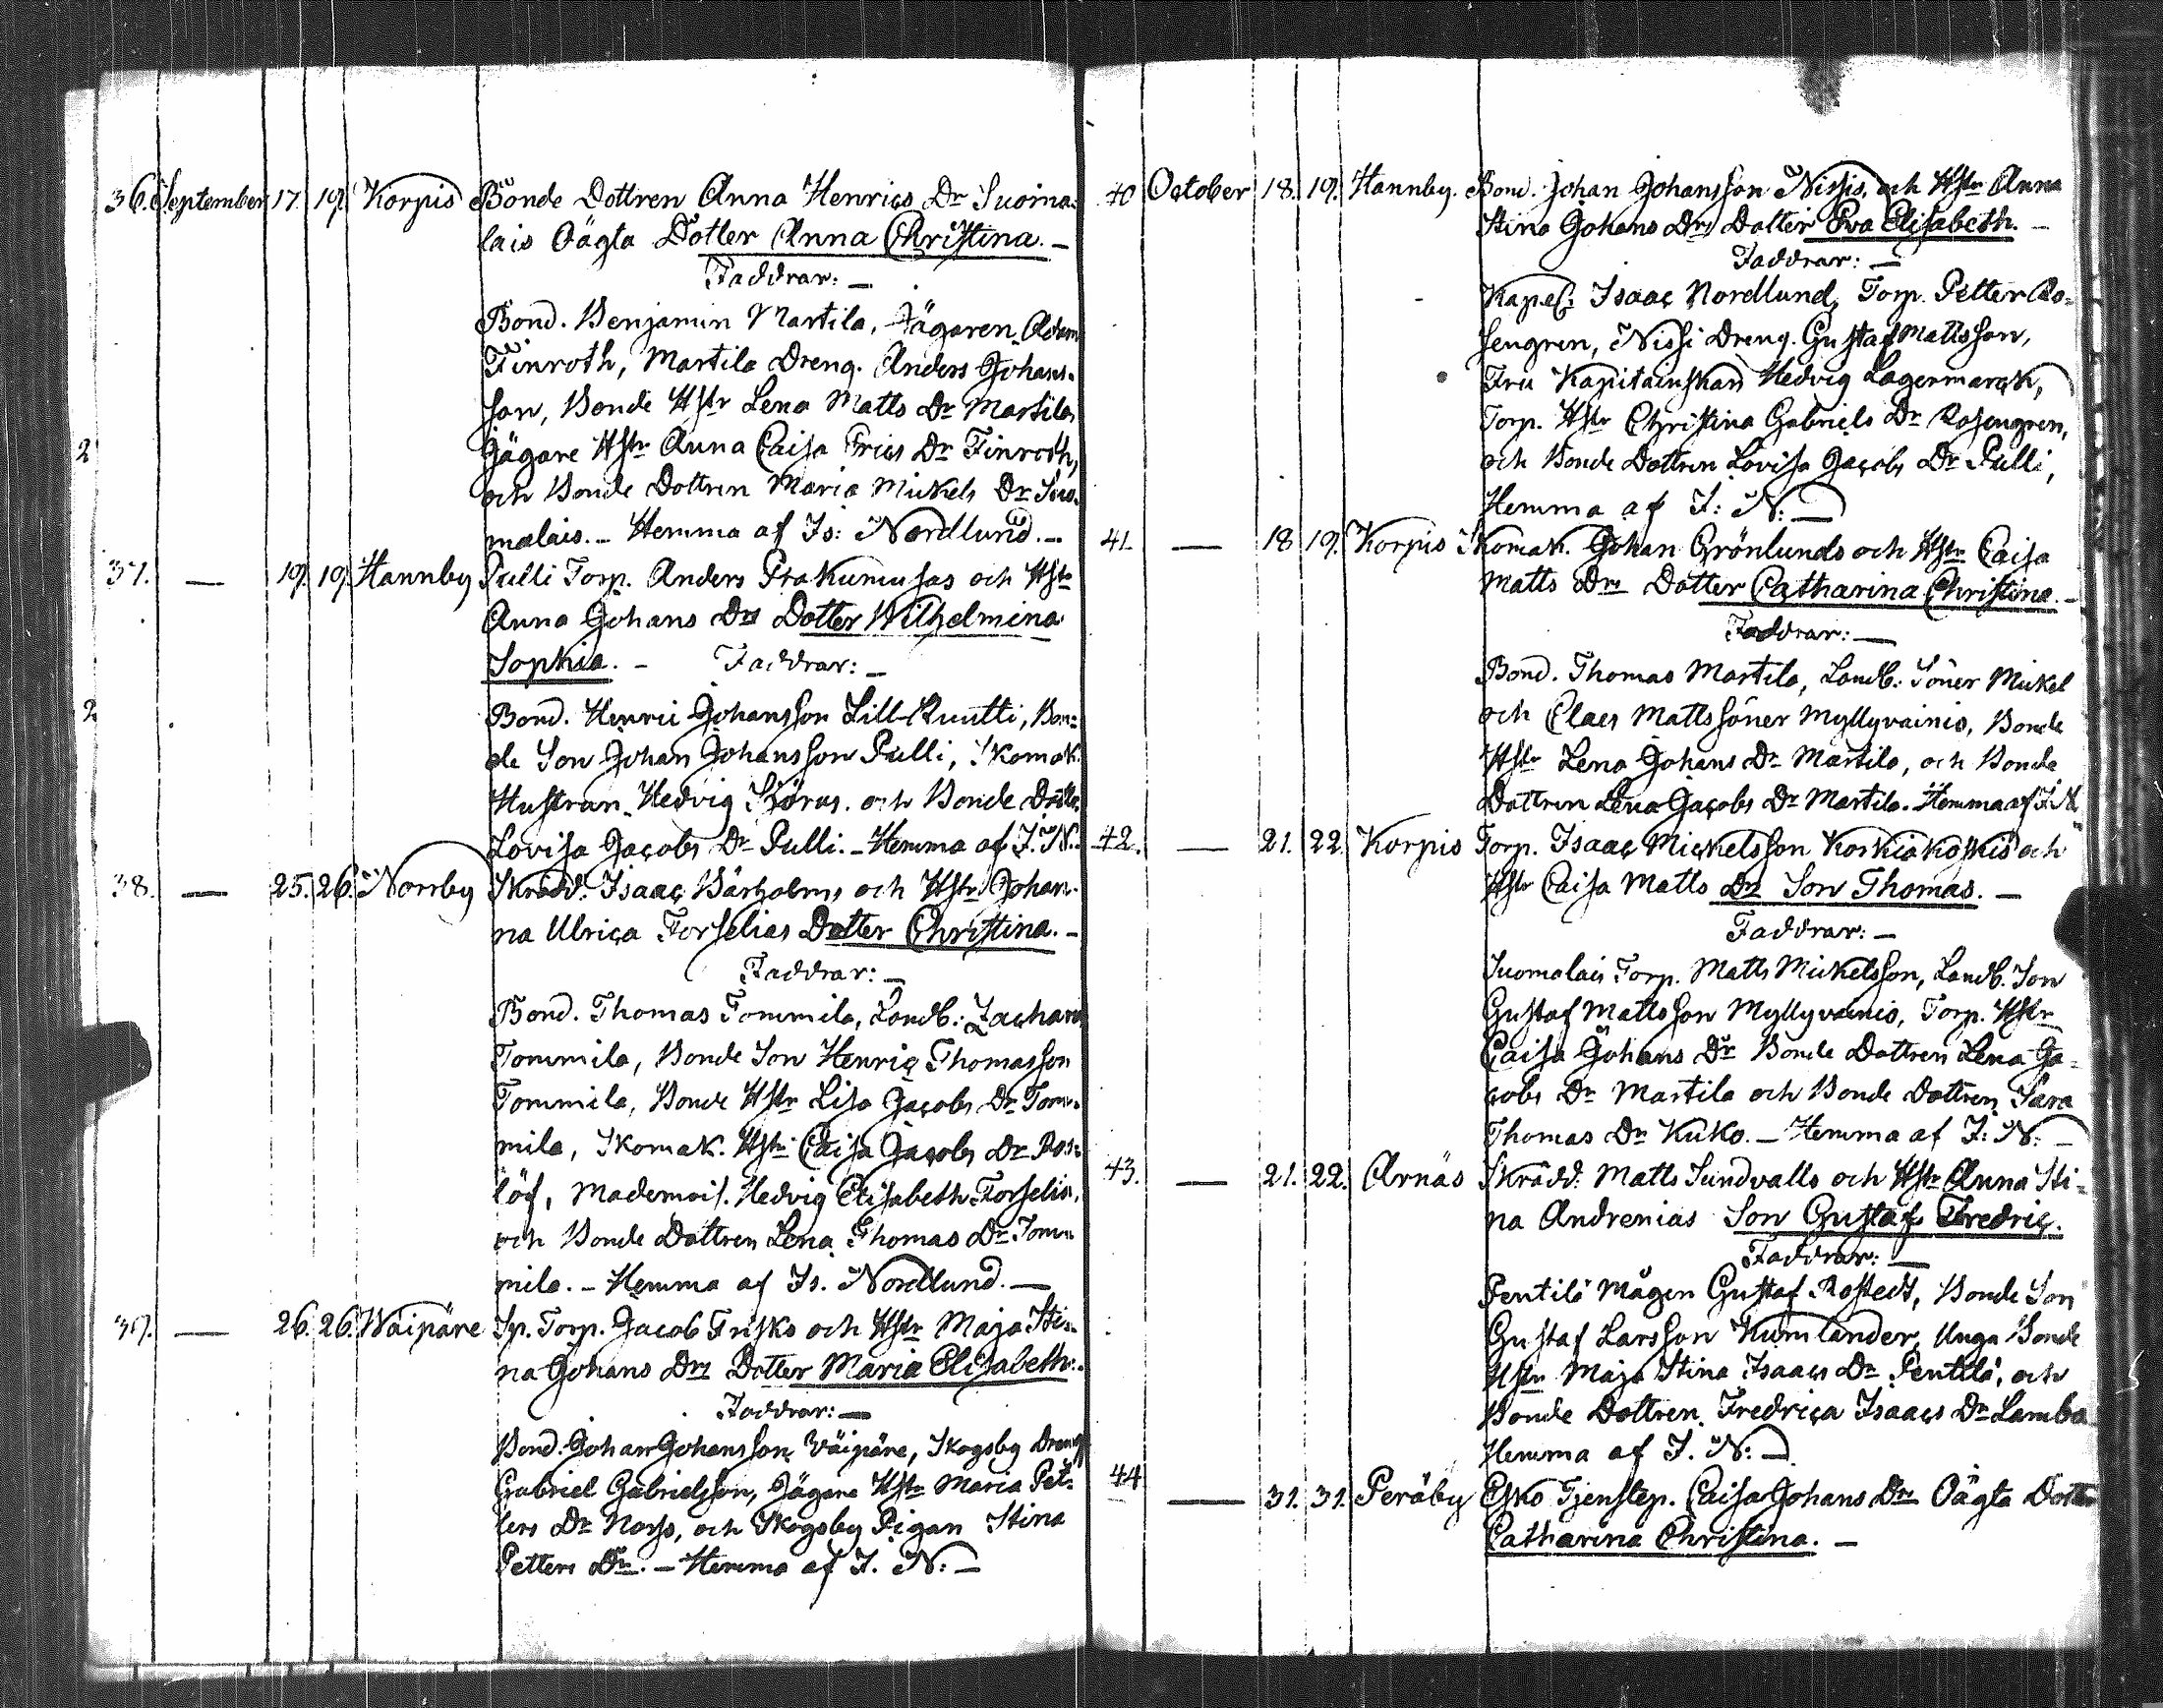 36. September 17. 19. Korpis Bonde Dottren Anna Henrics Dr Suoma-
lais Oägta Dotter Anna Christina. —
Faddrar: —
Bond. Benjamin Martila, Jägaren Adam
Finroth, Martila Dreng. Anders Johans-
son, Bonde Hstr Lena Matts Dr Martila,
Jägare Hstr Anna Caisa Erics Dr Finroth,
och Bonde Dottren Maria Mickels Dr Suo-
malais. — Hemma af Is: Nordlund. —
37. — 19. 19. Hannby Pulli Torp. Anders och Hstr
Anna Johans Drs Dotter Wilhelmina
Sophia. — Faddrar: —
Bond. Henric Johansson Lill-Ruutti, Bon-
de Son Johan Johansson Pulli, Skomak.
Hustran Hedvig och Bonde Dottr.
Lovisa Jacobs Dr Pulli. — Hemma af I. N.
38. — 25. 26. Norrby Skrädd: Isaac och Hstr Johan-
na Ulrica Forselias Dotter Christina. —
Faddrar: —
Bond. Thomas Tommila, Landb: Zacharis
Tommila, Bonde Son Henric Thomasson
Tommila, Bonde Hstr Lisa Jacobs Dr Tom-
mila, Skomak. Hstr Caisa Jacobs Dr Ros-
löf, Mademois. Hedvig Elisabeth Forselia,
och Bonde Dottren Lena Thomas Dr Tom-
mila. — Hemma af Is. Nordlund. —
39. — 26. 26. Waipäre Sp. Torp. Jacob Frisks och Hstr Maja Sti-
na Johans Drs Dotter Maria Elisabeth.
Faddrar: —
Bond. Johan Johansson Väipäre, Skogsby Dreng
Gabriel Gabrielsson, Jägare Hstr Maria Pet-
ters Dr Norss, och Skogsby Pigan Stina
Petters Dr. — Hemma af I. N: —
40 October 18. 19. Hannby. Bond. Johan Johansson Nissis, och Hstr Anna
Stina Johans Drs Dotter Eva Elisabeth. —
Faddrar: —
Kapel: Isaac Nordlund, Torp. Petter Ro-
sengren, Nissi Dreng. Gustaf Mattsson,
Fru Kapitainskan Hedvig Lagermarck,
Torp. Hstr Christina Gabriels Dr Rosengren,
och Bonde Dottren Lovisa Jacobs Dr Pulli,
Hemma af I: N: —
41. — 18 19. Korpis Skomak. Johan Grönlunds och Hstr Caisa
Matts Drs Dotter Catharina Christina. —
Faddrar: —
Bond. Thomas Martila, Landb: Söner Mickel
och Claes Mattssöner Myllyvainio, Bonde
Hstr Lena Johans Dr Martila, och Bonde
Dottren Lena Jacobs Dr Martila. Hemma af I. N.
42. — 21. 22. Korpis Torp. Isaac Mickelsson Koskiakoskis och
Hstr Caisa Matts Drs Son Thomas. —
Faddrar: —
Suomalais Torp. Matts Mickelsson, Landb. Son
Gustaf Mattsson Myllyvainio, Torp. Hstr
Caisa Johans Dr Bonde Dottren Lena Ja-
cobs Dr Martila och Bonde Dottren Sara
Thomas Dr Kuko. — Hemma af I: N: —
43. — 21. 22. Arnäs Skrädd: Matts Sundvalls och Hstr Anna Sti-
na Andrenias Son Gustaf Fredric.
Faddrar: —
Pentilä Mågen Gustaf Rostedt, Bonde Son
Gustaf Larsson Kumlander, Unga Bonde
Hstr Maja Stina Isaacs Dr Pentilä, och
Bonde Dottren Fredrica Isaacs Dr Lamba
Hemma af I. N: —
44 — 31. 31. Peräby Esko Tjenstep. Caisa Johans Drs Oägta Dotter
Catharina Christina. —